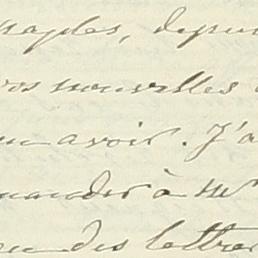 Naples, depui
vos nouvelles
en avoir. J'a
mander à Mr
eu des lettre